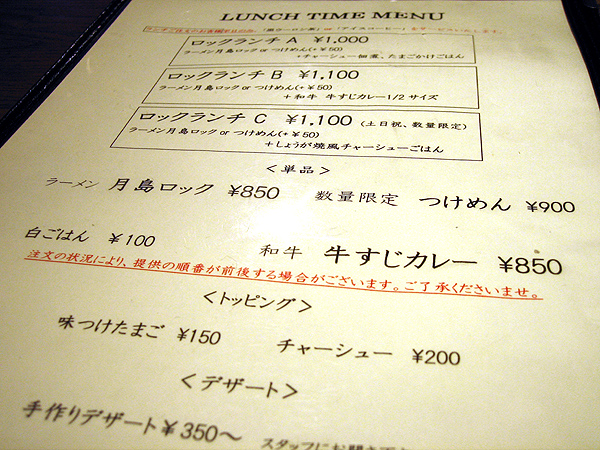 LUNCH TIME MENU
ロックランチ A ¥1,000
ラーメン月島ロック or つけめん(+¥50)
+チャーシュー佃煮、たまごかけごはん
ロックランチ B ¥1,100
ラーメン月島ロック or つけめん(+¥50)
+和牛 牛すじカレー1/2サイズ
ロックランチ C ¥1,100 (土日祝、数量限定)
ラーメン月島ロック or つけめん(+¥50)
+しょうが焼風チャーシューごはん
<単品>
ラーメン 月島ロック ¥850 数量限定 つけめん ¥900
白ごはん ¥100 和牛 牛すじカレー ¥850
注文の状況により、提供の順番が前後する場合がございます。ご了承くださいませ。
<トッピング>
味つけたまご ¥150 チャーシュー ¥200
<デザート>
手作りデザート¥350～ スタッフにお聞き下